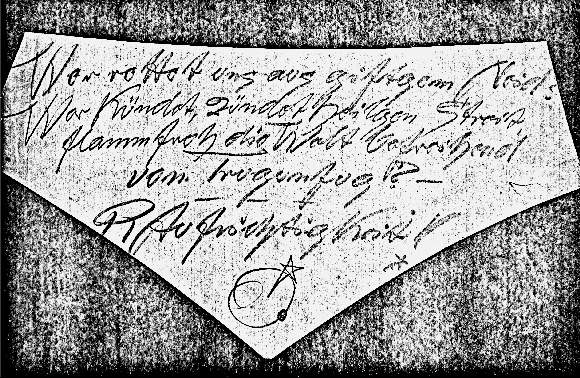 Wer rottet uns aus giftgem Neid:
Wer Kündet, zündet heilgen Streit
flammfroh die Welt befreihend
vom Trugunfug? —
R Aufrichtigkeit!